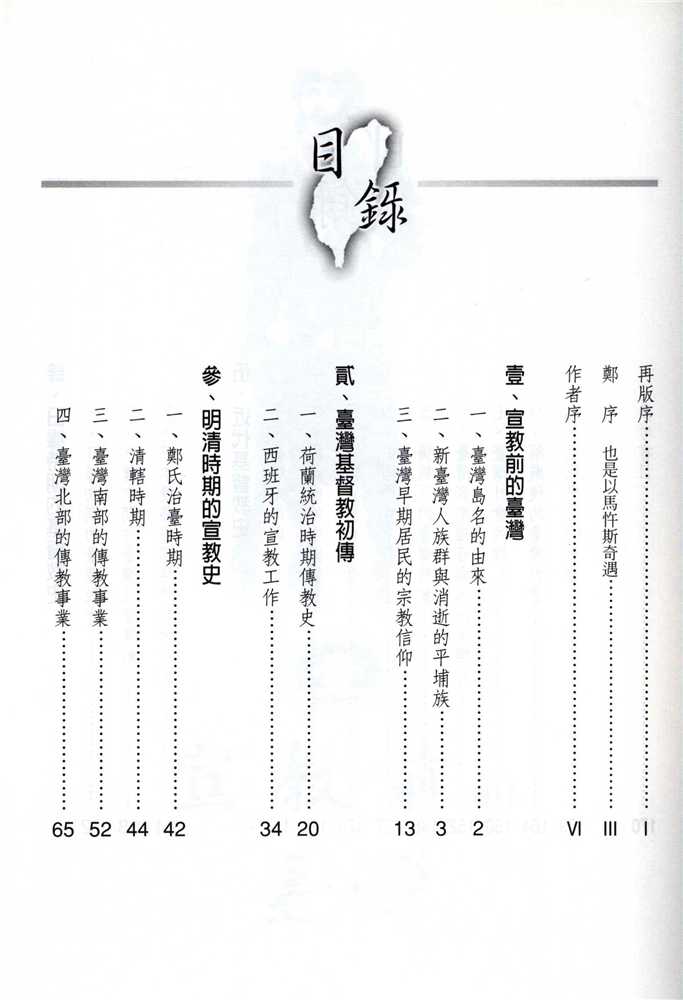 目錄
再版序……………………………………I
鄭　序　也是以馬忤斯奇遇……………………III
作者序……………………………………VI
壹、宣教前的臺灣
一、臺灣島名的由來……………………2
二、新臺灣人族群與消逝的平埔族…………3
三、臺灣早期居民的宗教信仰……………13
貳、臺灣基督教初傳
一、荷蘭統治時期傳教史………………20
二、西班牙的宣教工作…………………34
參、明清時期的宣教史
一、鄭氏治臺時期……………………42
二、清轄時期…………………………44
三、臺灣南部的傳教事業………………52
四、臺灣北部的傳教事業………………65